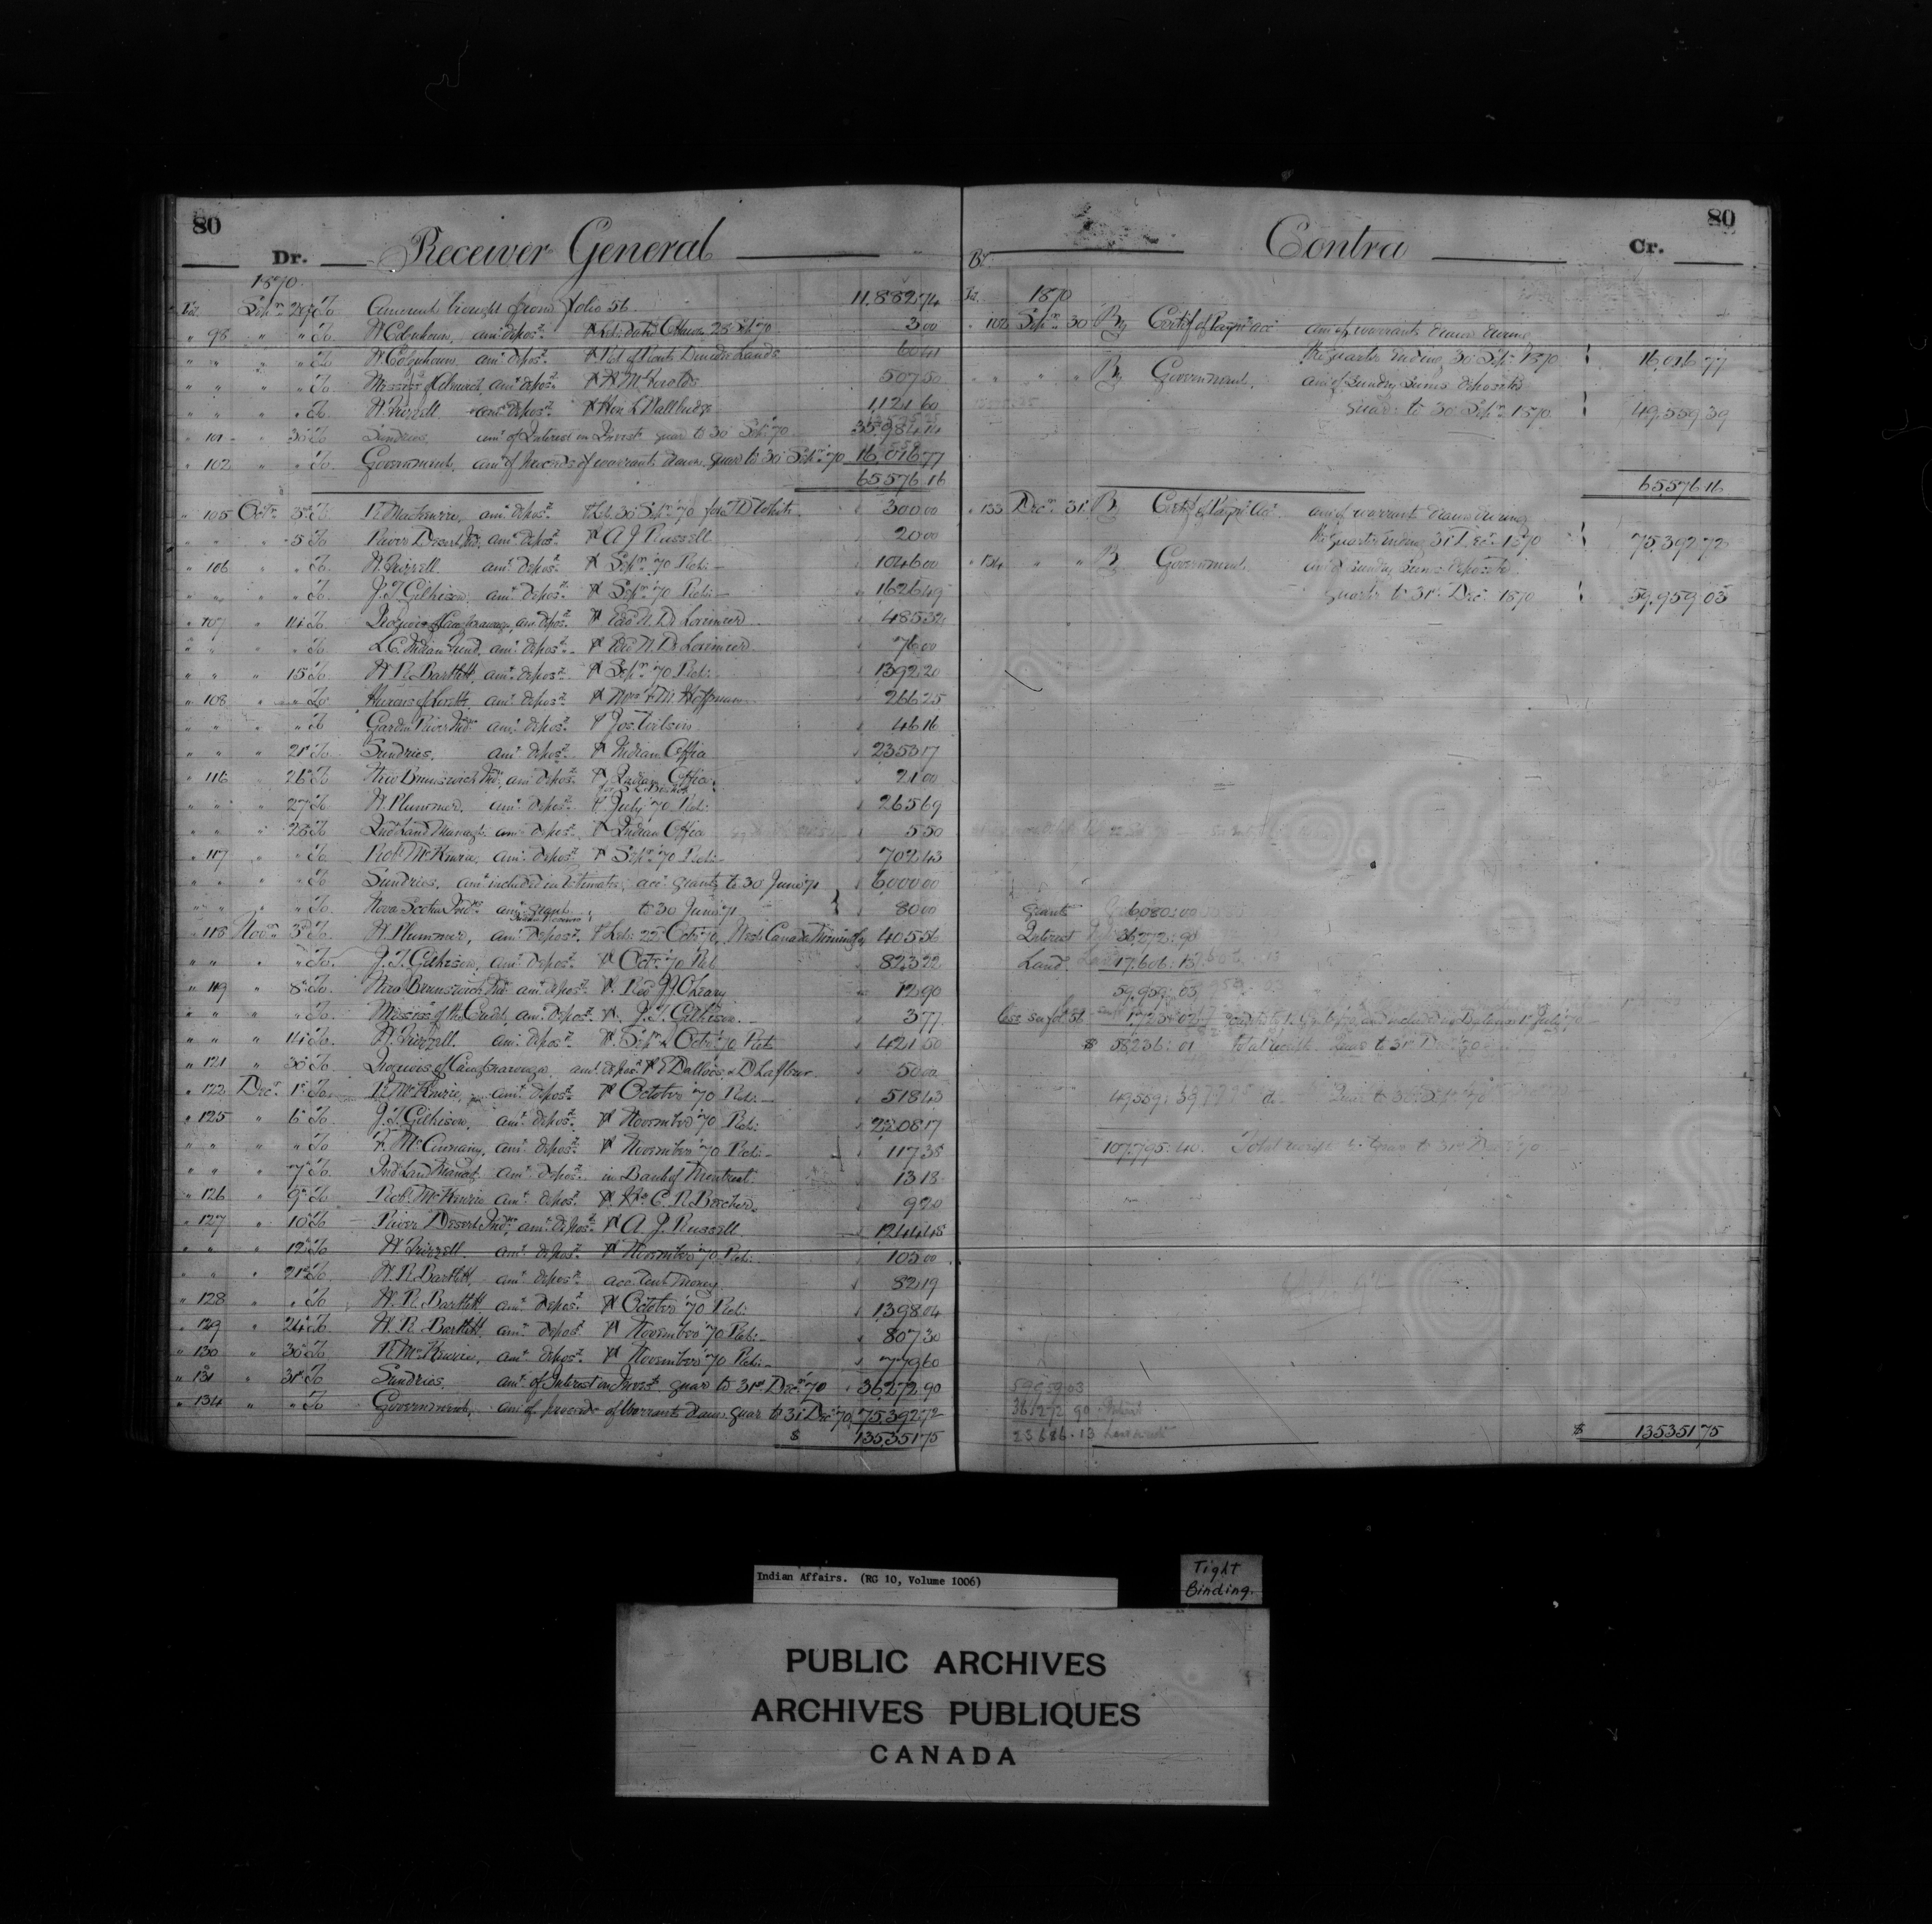 80
Dr. Receiver General
1870
Fo. Sepr 28 To Amount brought from folio 56. 11,882 74
" 98 " " To W Colquhoun, amt depost 3 00
" " " " To W Colquhoun, amt depost 60 41
" " " " To amt depost 507 50
" " " " To amt depost 1,121 60
" 101 " 30 To Sundries, amt of Interest on Invest. quar to 30 Sepr 70 35,984 14
" 102 " " To Government, amt of proceeds of warrants drawn quar to 30 Sepr 70 16,016 77
65,576 16
" 105 Octr 3d To R. MacKenzie, amt depost 300 00
" " " 5 To River Desert Inds amt depost ⅌ A J Russell 20 00
" 106 " " To amt depost ⅌ Sepr 70 Retn 1046 00
" " " " To J. T. Gilkison, amt depost ⅌ Sepr 70 Retn 1626 49
" 107 " 14 To Iroquois of Caughnawaga, amt depost De Lorimier 485 32
" " " " To L. C. Indian Fund, amt depost De Lorimier 76 00
" " " 15 To W R Bartlett, amt depost ⅌ Sepr 70 Retn 1392 20
" 108 " " To Hurons of Lorette, amt depost 266 25
" " " " To Garden River Inds amt depost ⅌ Jos. Wilson 46 16
" " " 21 To Sundries, amt depost ⅌ Indian Office 2353 17
" 116 " 26 To New Brunswick Inds, amt depost ⅌ Indian Office 21 00
" " " 27 To W. Plummer, amt depost ⅌ July 70 Retn 265 69
" " " 28 To Ind Land Managt amt depost ⅌ Indian Office 5 50
" 117 " " To Robt McKenzie, amt depost ⅌ Sepr 70 Retn 702 43
" " " " To Sundries, amt included in Estimates, acct grants to 30 June 71 6,000 00
" " " " To Nova Scotia Inds amt grant to 30 June 71 80 00
" 118 Novr 3 To W. Plummer, amt depost 22 Octr 70, West Canada Mining Co 405 56
" " " " To J. T. Gilkison, amt depost ⅌ Octr 70 Ret 823 22
" 119 " 8 To New Brunswick Inds amt depost ⅌ Rev J J O'Leary 12 90
" " " " To Missisas of the Credit, amt depost ⅌ J. T. Gilkison 3 77
" " " 14 To amt depost ⅌ Sepr & Octr 70 Rets 421 60
" 121 " 30 To Iroquois of Caughnawaga, amt depost 50 00
" 122 Decr 1 To R. McKenzie, amt depost ⅌ October 70 Retn 518 43
" 125 " 6 To J. T. Gilkison, amt depost ⅌ November 70 Retn 2,208 17
" " " " To amt depost ⅌ November 70 Retn 117 35
" " " 7 To Ind Land Managt amt depost in Bank of Montreal 13 18
" 126 " 9 To Robt McKenzie amt depost ⅌ C. R. Beecher 9 20
" 127 " 10 To River Desert Inds amt depost ⅌ A. J. Russell 1244 48
" " " 12 To amt depost ⅌ November 70 Retn 103 00
" " " 21 To W. R. Bartlett, amt depost 82 19
" 128 " " To W. R. Bartlett, amt depost ⅌ October 70 Retn 1,398 04
" 129 " 24 To W. R. Bartlett, amt depost ⅌ November 70 Retn 807 30
" 130 " 30 To R. McKenzie, amt depost ⅌ November 70 Retn 779 60
" 131 " 31 To Sundries, amt of Interest on Invest. quar to 31st Decr 70 36,272 90
" 134 " " To Government, amt of proceeds of Warrants drawn quar to 31 Dec 70 75,392 72
$ 135,351 75
80
Contra Cr.
Fo. 1870
" 102 Sepr 30 By Certif. of Paymt acct amt of warrants drawn during
the quarter ending 30 Sepr 1870 16,016 77
" " " " By Government, amt of sundry sums deposited
quar to 30 Sepr 1870 49,559 39
65,576 16
" 133 Decr 31 By Certif of Paymt acct amt of warrants drawn during
the quarter ending 31 Decr 1870 75,392 72
" 134 " " By Government, amt of sundry sums deposited
quarter to 31st Decr 1870 59,959 03
Grants 6,080:00
Interest 36,272:90
Land 17,606:13
59,959:03
Balance 1st July 70
$ 58236:01 Total receipts Quar to 31st Decr 70
49,559:39 do Quar to 30 Sepr 70
107,795:40 Total receipts to 31st Decr 70
59959.03
36,272.90
23686.13
$ 135351 75
Indian Affairs. (RG 10, Volume 1006)
Tight
Binding.
PUBLIC ARCHIVES
ARCHIVES PUBLIQUES
CANADA